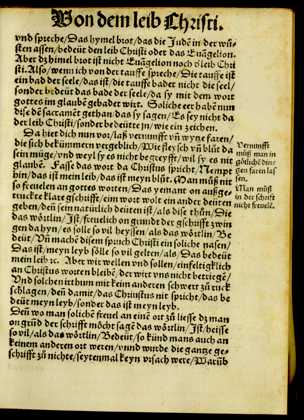 Von dem leib Christi.
vnd spreche/Das hymel brot/das die Judē in der wü-
sten assen/bedeüt den leib Christi oder das Euāgelion.
Aber dz himel brot ist nicht Euāgelion noch d leib Chri
sti. Also/wenn ich von der tauffe spreche/Die tauffe ist
ein bad der seele/das ist/die tauffe badet nicht die seel/
sonder bedeüt das bade der seele/da sy mit dem wort
gottes im glaubē gebadet wirt. Soliche eer habē nun
dise dē sacramēt gethan/das sy sagen/Es sey nicht da
der leib Christi/sonder bedeütte jn/wie ein zeichen.
Da hiet dich nun vor/laß vernunfft vn̄ wyne faren/
die sich bekümmern vergeblich/Wie fleysch vn̄ blüt da
sein müge/vnd weyl sy es nicht begreyfft/wil sy es nit
glaubē. Fasse das wort da Christus spricht/Nempt
hin/das ist mein leib/das ist meyn blüt. Man müß nit
so freuelen an gottes worten/Das yemant on außge-
truckte klare schrifft/eim wort wolt ein ander deuten
geben/den sein natürlich deüten ist/als dise thün/Die
das wörtlin/Ist/freuelich on grundt der schrifft zwin
gen dahyn/es sölle so vil heyssen/als das wörtlin/Be
deüt/Vn̄ machē disem spruch Christi ein soliche nasen/
Das ist/meyn leyb sölle so vil gelten/als/Das bedeüt
mein leib ꝛc. Aber wir wellen vnd sollen/einfeltigklich
an Christus worten bleibē/der wirt vns nicht betriegē/
Vnd solchen irthum mit kein anderen schwert zü ruck
schlagen/deñ damit/das Christus nit spricht/das be
deüt meyn leyb/sonder das ist meyn leyb.
Deñ wo man solichē freuel an einē ort zü liesse dz man
on grūd der schrifft möcht sagē dis wörtlin/Ist/heisse
so vil/als das wörtlin/Bedeüt/so künd mans auch an
keinem anderen ort weren/vnnd würde die gantze ge-
schrifft zü nichte/seytenymal keyn vrsach were/Warüb
Vernunfft
müß man in
götlichē din-
gen faren las
sen.
Man müß
in der schrift
nicht freuelē.